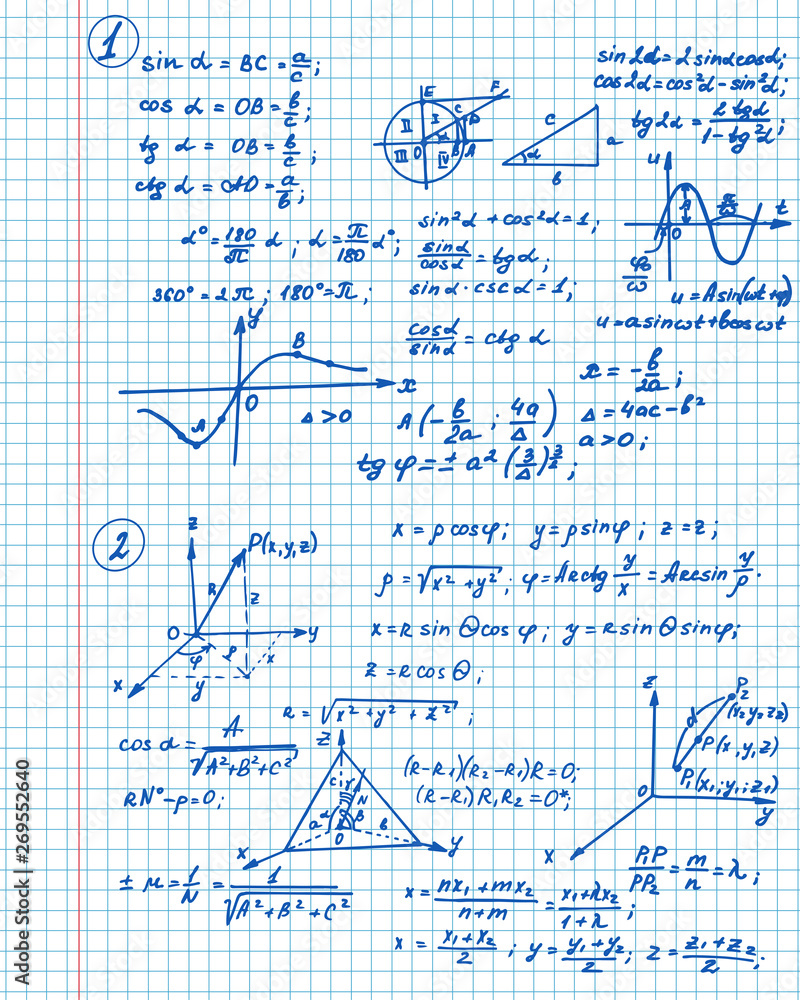 1
sin α = BC = a/c;
cos α = OB = b/c;
tg α = OB = b/c;
ctg α = AD = a/b;
E F
II I C D
α
III O IV B A
c a
α
b
sin2α = 2sinαcosα;
cos2α = cos²α - sin²α;
tg2α = 2tgα/1-tg²α;
u
A π/ω t
O
φ/ω
u = Asin(ωt+φ)
u = asinωt + bcosωt
α° = 180/π α; α = π/180 α°;
360° = 2π; 180° = π;
sin²α + cos²α = 1;
sinα/cosα = tgα;
sinα · cscα = 1;
cosα/sinα = ctgα
y
B
x
O
A
Δ > 0
x = -b/2a;
A(-b/2a; 4a/Δ)
Δ = 4ac - b²
a > 0;
tgφ = ± a²(3/Δ)^3/2;
2
z
P(x,y,z)
R z
O y
φ ρ x
x y
x = ρcosφ; y = ρsinφ; z = z;
ρ = √x² + y²; φ = Arctg y/x = Arcsin y/ρ.
x = R sin Θ cos φ; y = R sin Θ sin φ;
z = R cos Θ;
R = √x² + y² + z²;
cos α = A/√A²+B²+C²
RN° - p = 0;
z
c γ N
α β
a O b
x y
(R-R₁)(R₂-R₁)R = 0;
(R-R₁)R₁R₂ = 0*;
z
P₂
(x₂y₂z₂)
d
P(x,y,z)
P₁(x₁;y₁;z₁)
O
y
x
P₁P/PP₂ = m/n = λ;
± μ = 1/N = 1/√A² + B² + C²
x = nx₁ + mx₂/n+m = x₁+λx₂/1+λ;
x = x₁+x₂/2; y = y₁+y₂/2; z = z₁+z₂/2;
Adobe Stock | #269552640